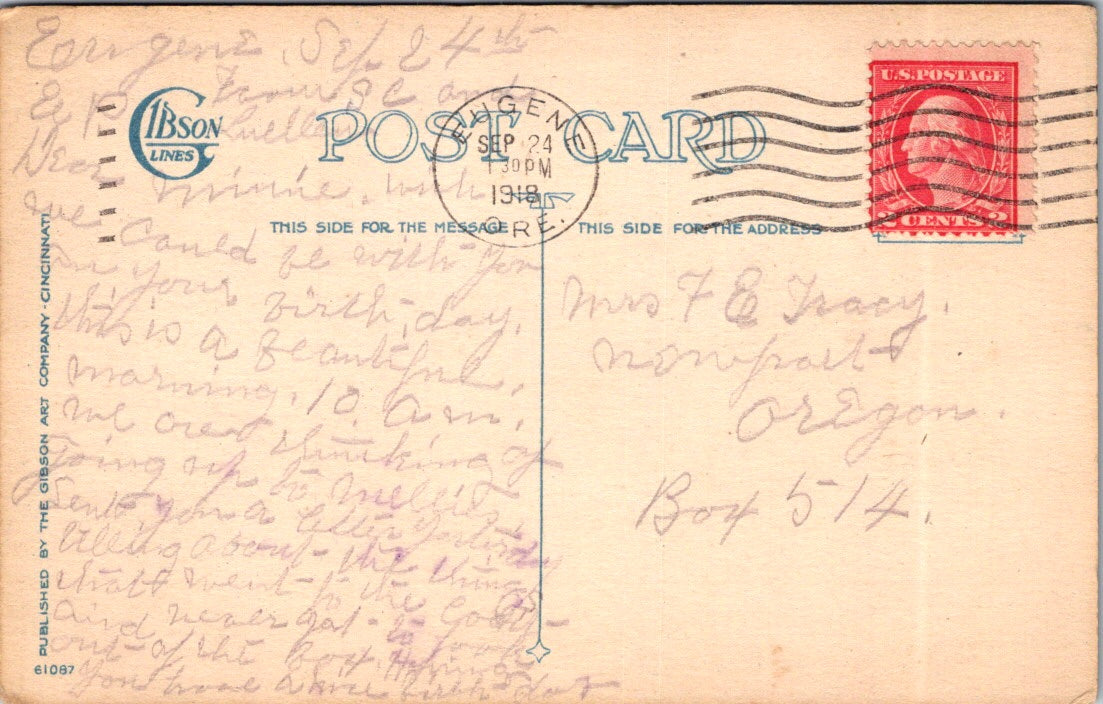 Eurgene, Sep. 24th
From J C and
Luella
Dear Minnie. wish
we could be with you
on your birth, day.
this is a beautiful,
morning, 10 a.m.
we are thinking of
going up to Nellies.
Sent you a letter yesterday
telling about the things
that went to the Coast
and never got to look
out of the Box. Hoping
you have a nice birth day
GIBSON
LINES
POST CARD
EUGENE
SEP 24
1 30 PM
1918
ORE.
U.S. POSTAGE
2 CENTS 2
THIS SIDE FOR THE MESSAGE
THIS SIDE FOR THE ADDRESS
Mrs F E Tracy.
Newport
Oregon.
Box 514.
PUBLISHED BY THE GIBSON ART COMPANY - CINCINNATI
61087